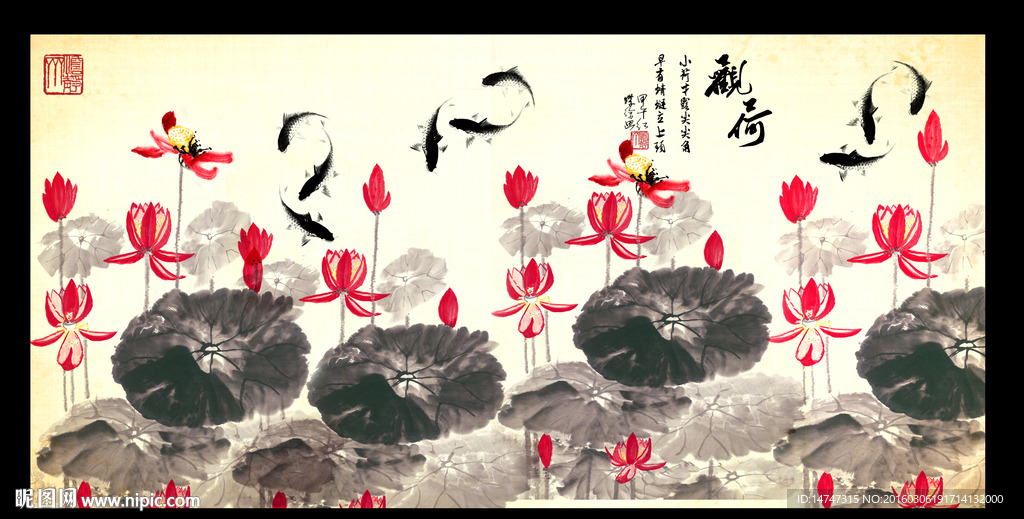 觀荷
小荷才露尖尖角
早有蜻蜓立上頭
昵图网 www.nipic.com
ID:14747315 NO:20160306191714132000